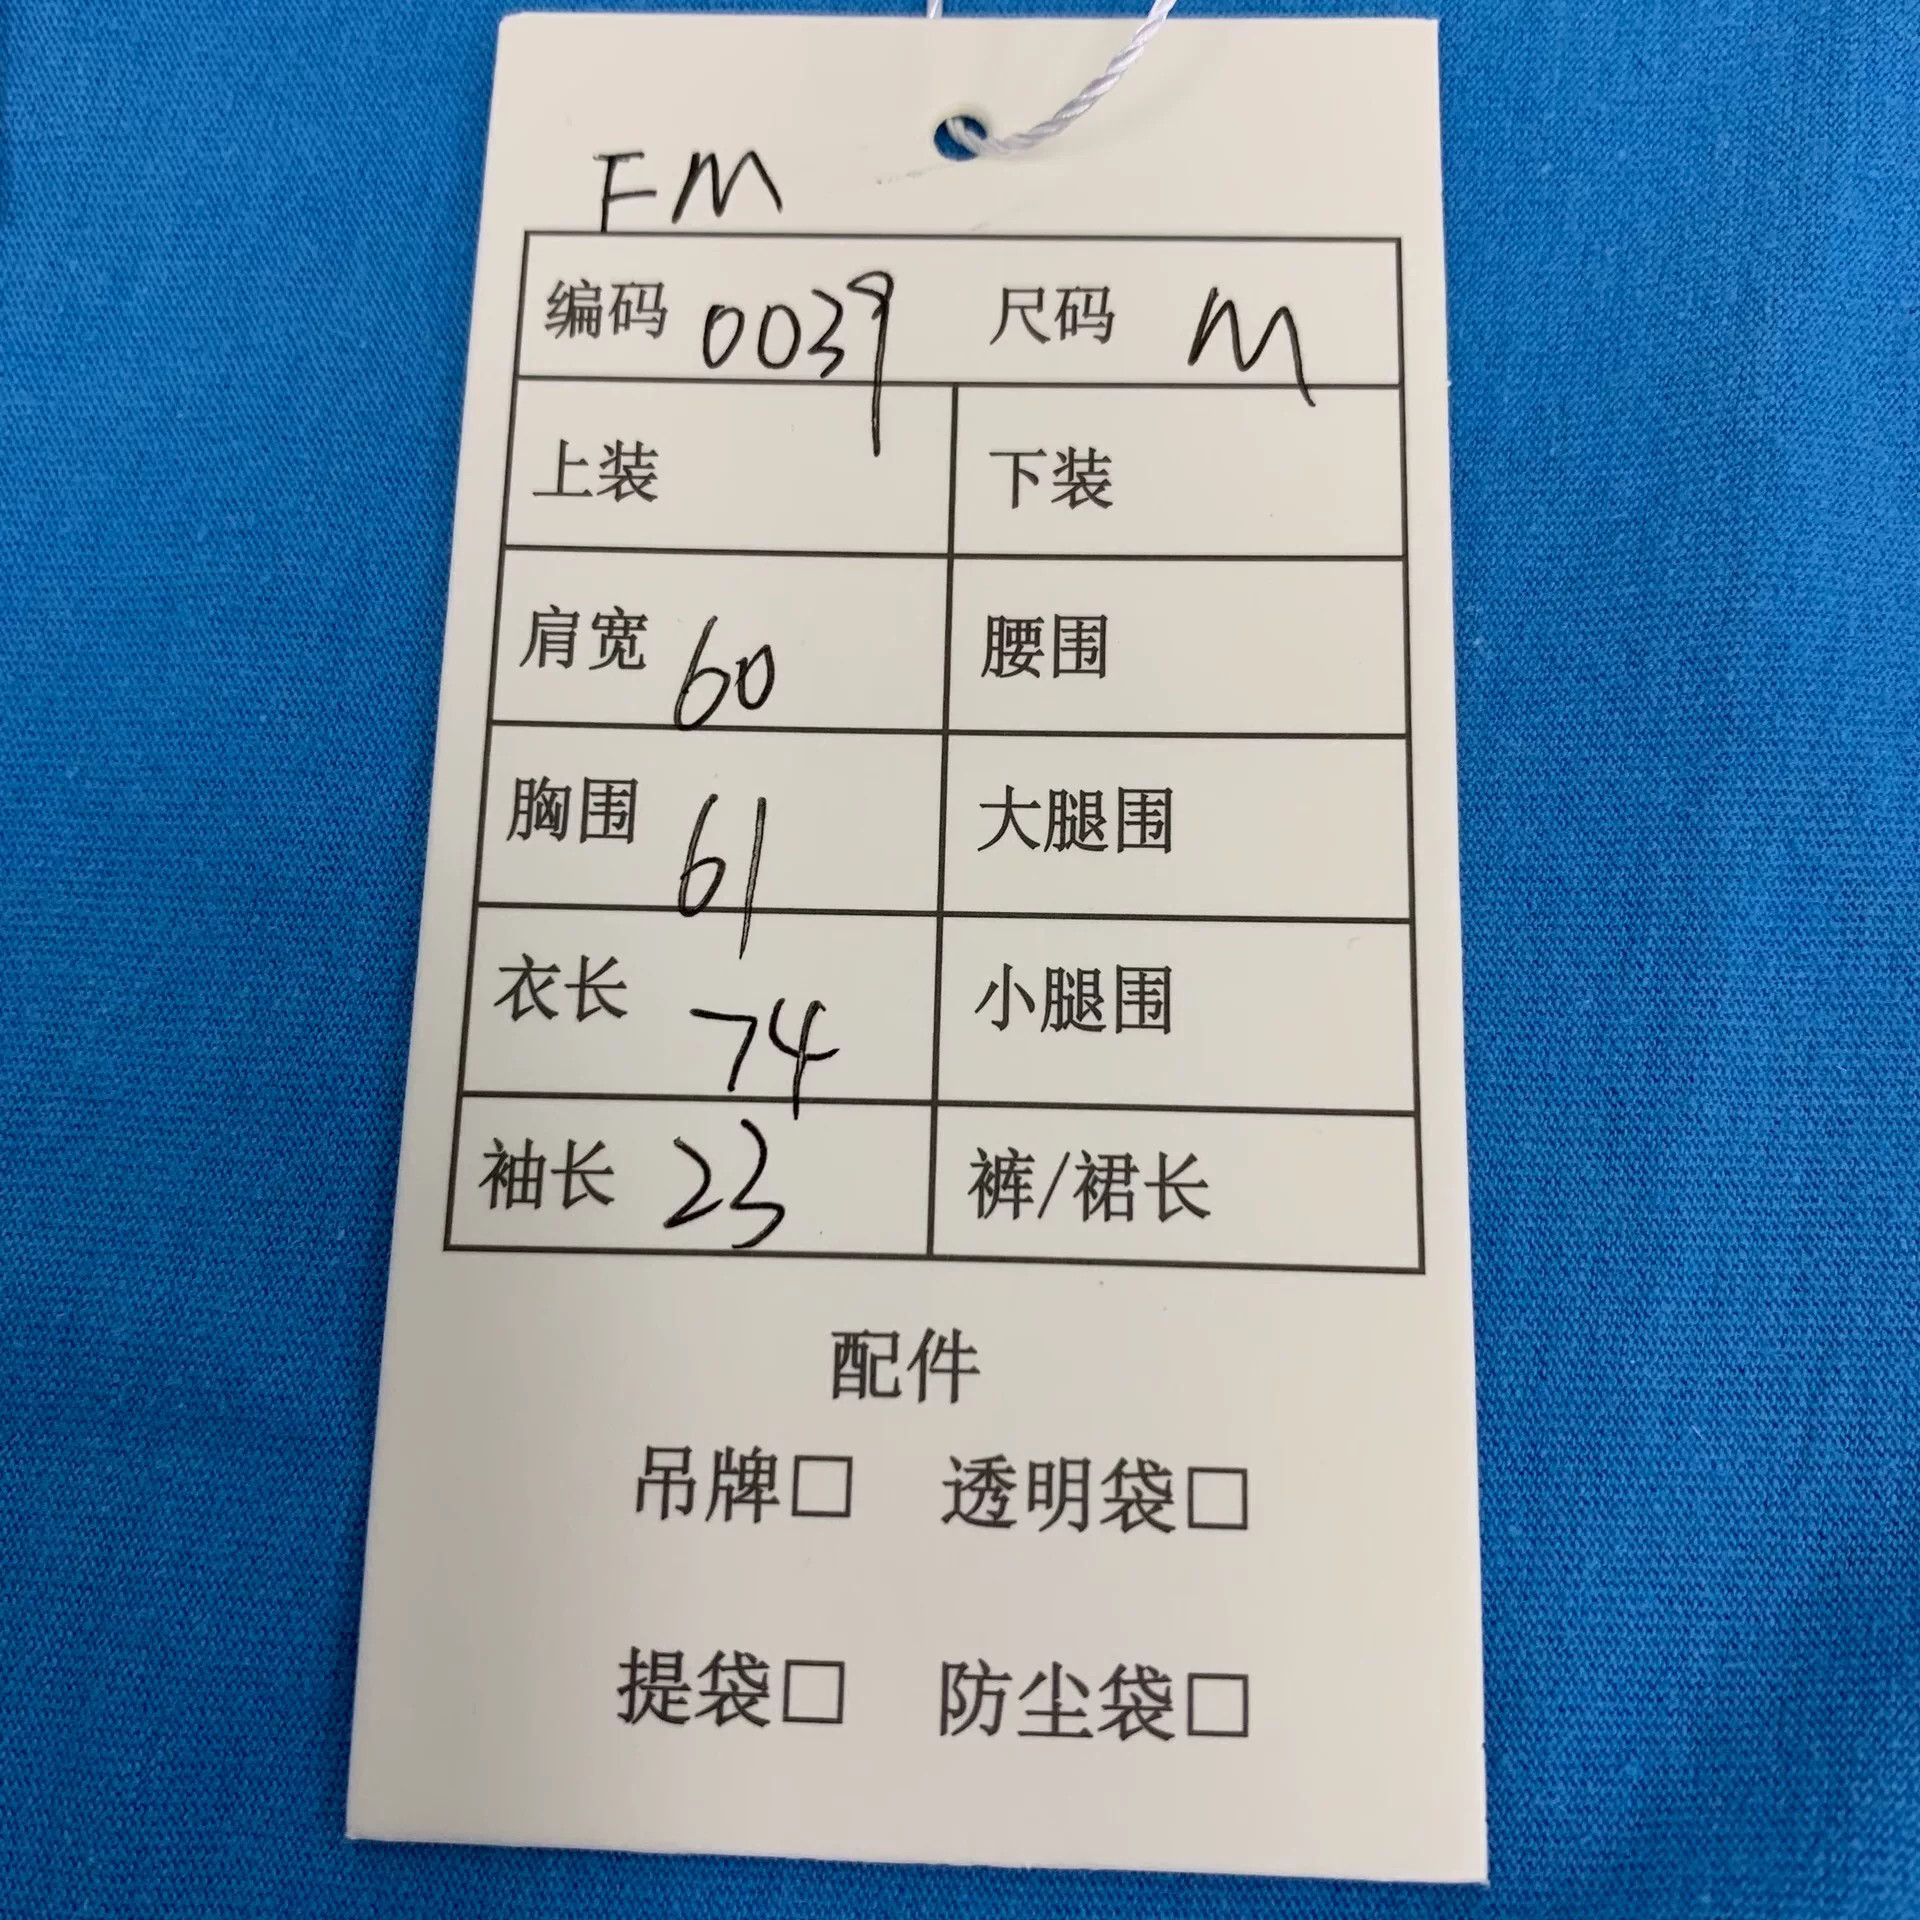 FM
编码 0039 尺码 M
上装 下装
肩宽 60 腰围
胸围 61 大腿围
衣长 74 小腿围
袖长 23 裤/裙长
配件
吊牌□ 透明袋□
提袋□ 防尘袋□